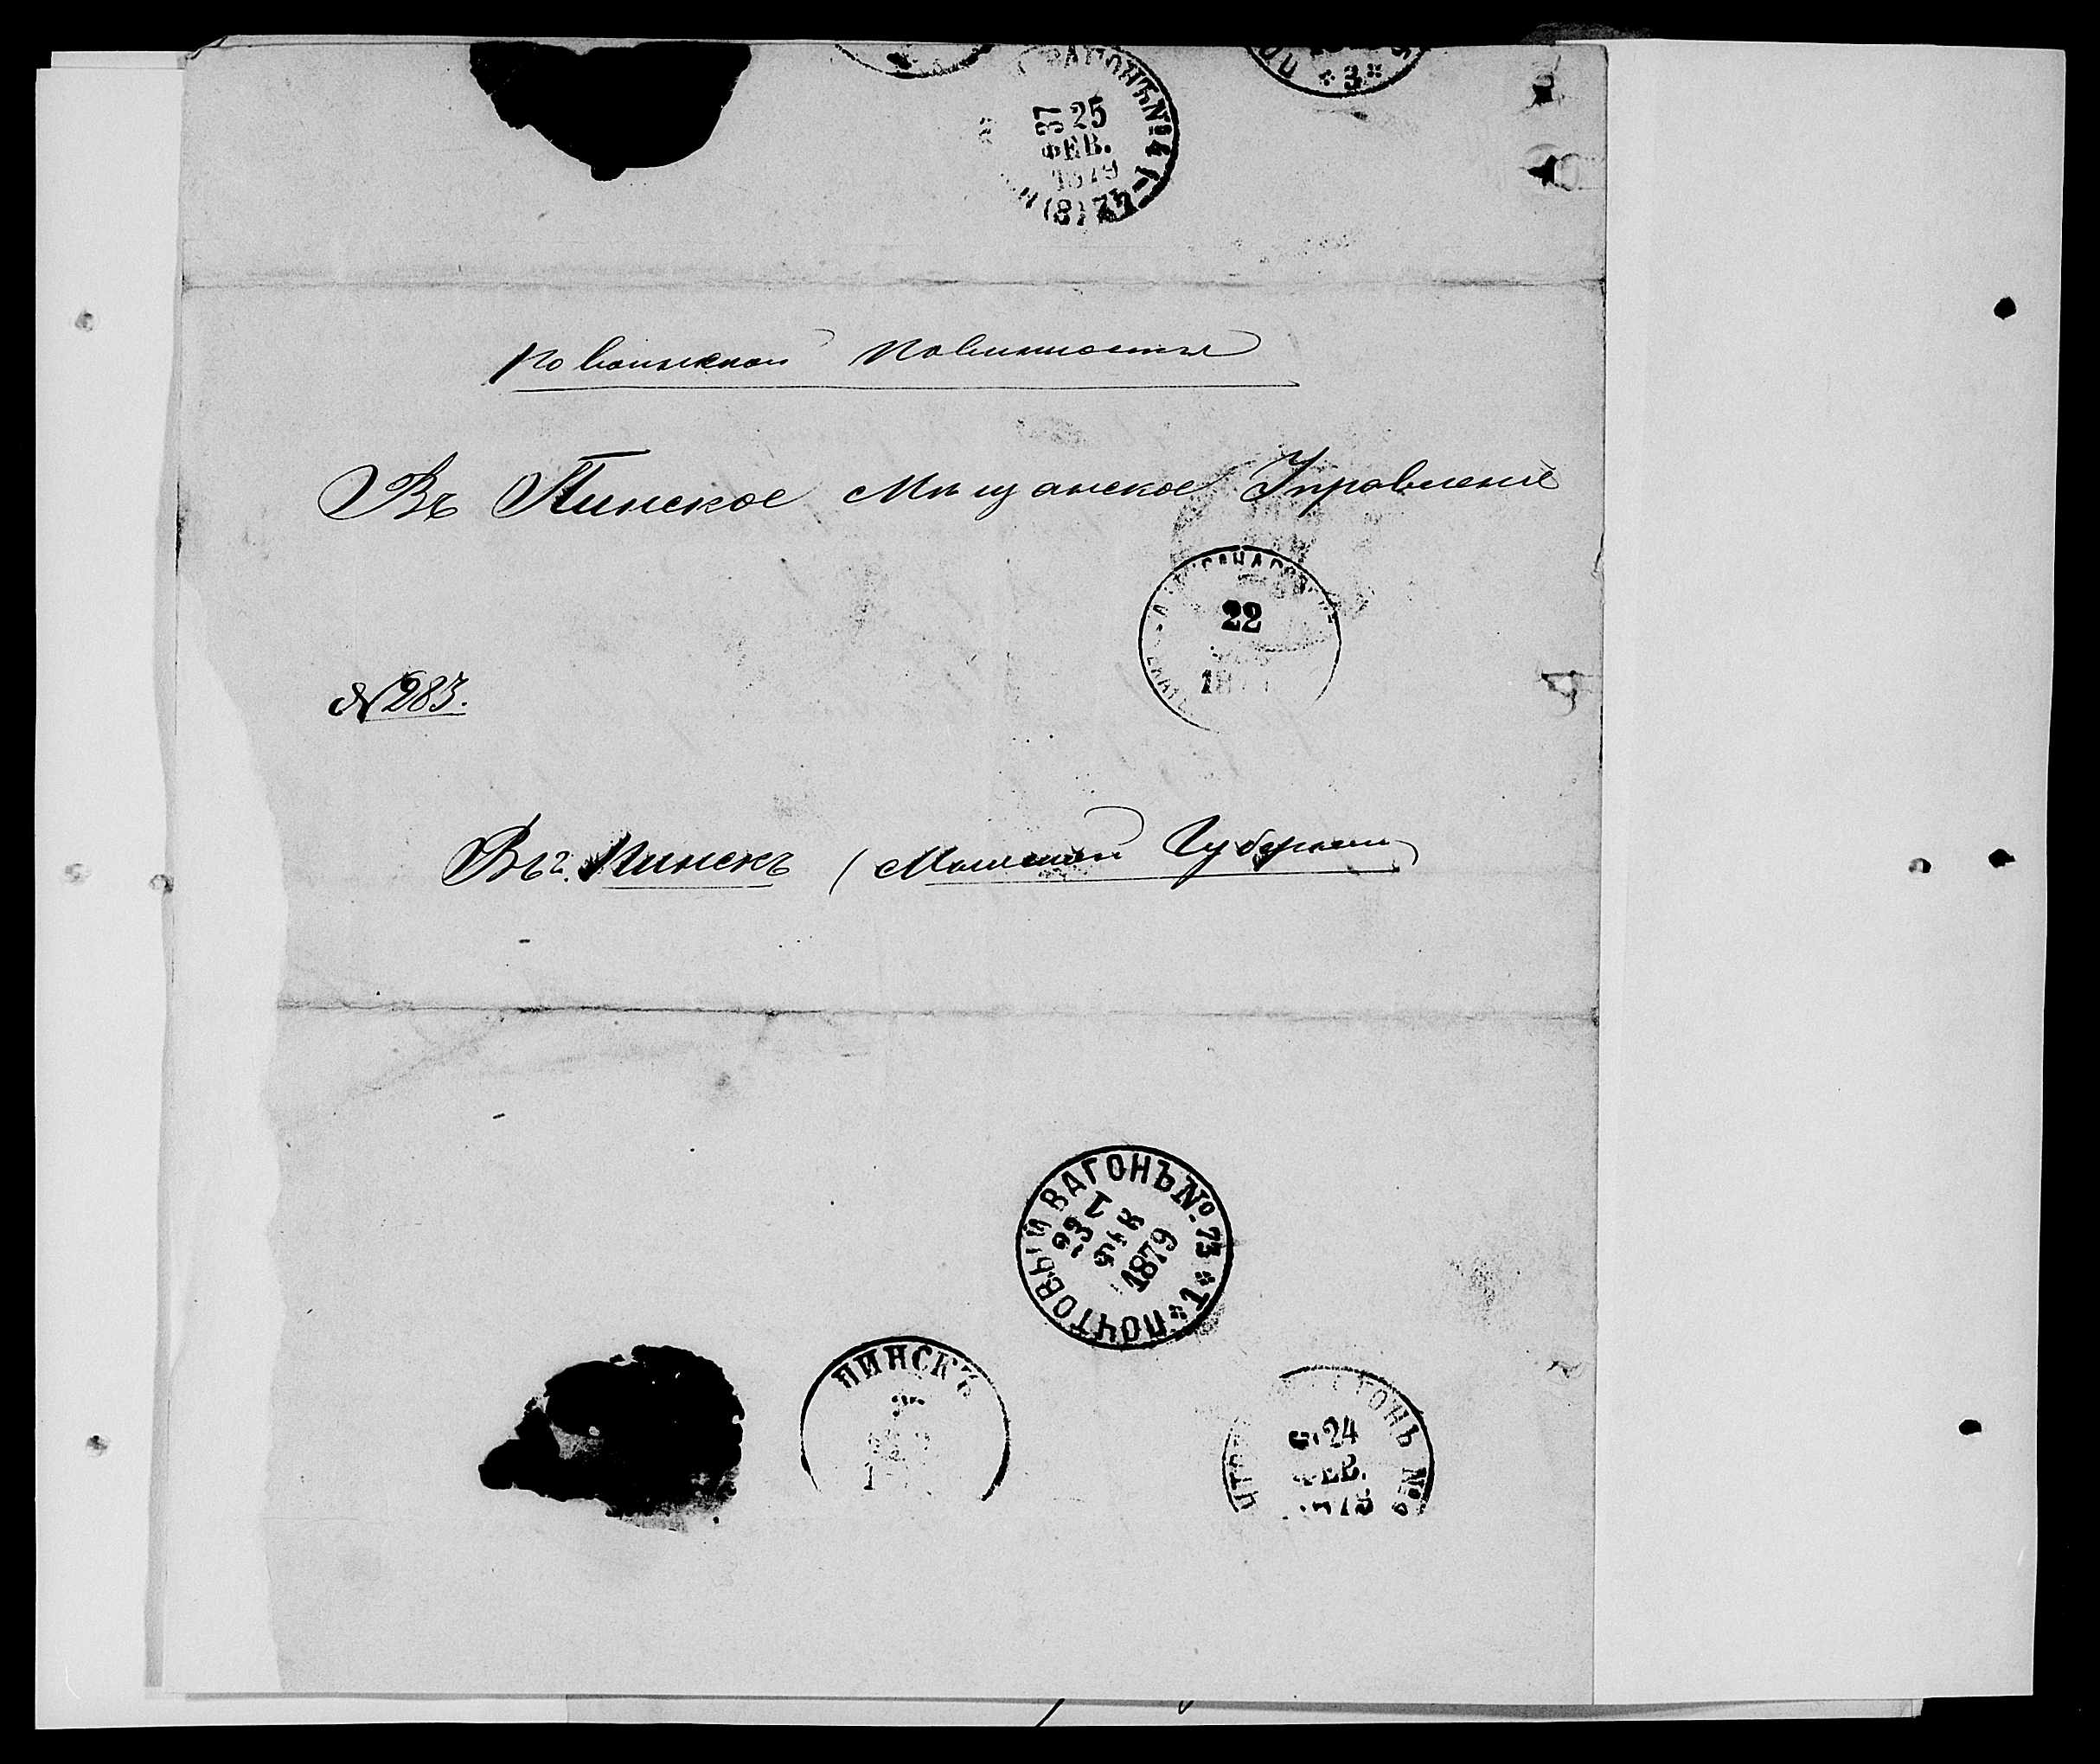 ВАГОНЪ № 4 1-
37 25
ФЕВ.
1879
*3*
По воинской повинности
Въ Пинское Мѣщанское Управленіе
22
№ 283.
Въ г. Пинскъ (Минской Губерніи)
ПОЧТОВЫЙ ВАГОНЪ № 73 * Т *
23
ФЕВ
1879
ПИНСКЪ
24
ФЕВ.